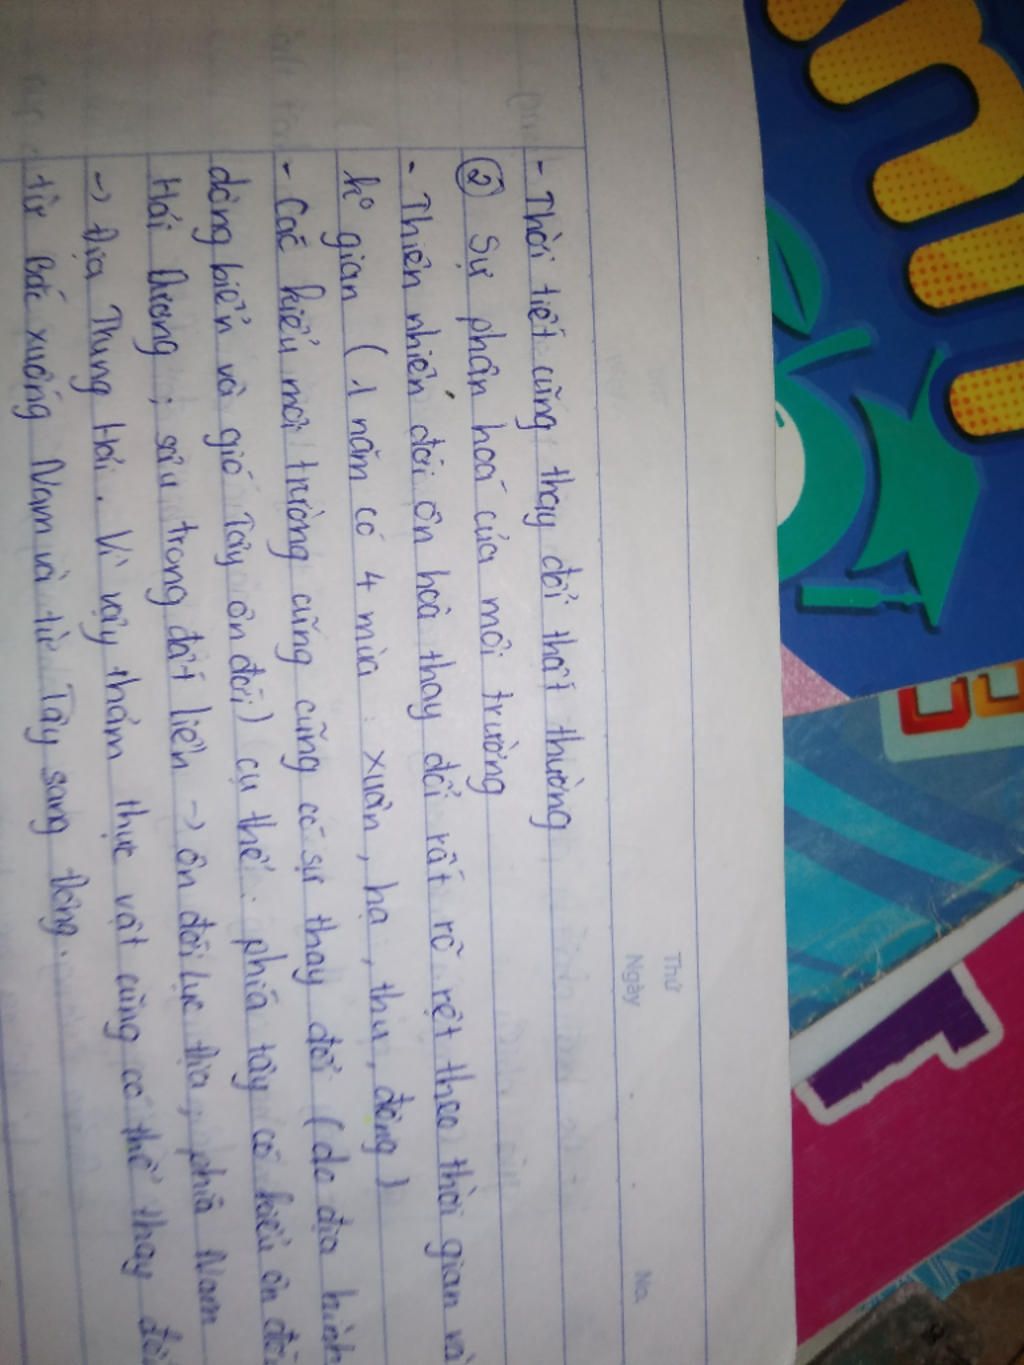 Thứ
Ngày
No.
- Thời tiết cũng thay đổi thất thường
② Sự phân hoá của môi trường
- Thiên nhiên đới ôn hoà thay đổi rất rõ rệt theo thời gian và
ko gian (1 năm có 4 mùa: xuân, hạ, thu, đông)
- Các kiểu môi trường cũng cũng có sự thay đổi (do địa hình
dòng biển và gió Tây ôn đới) cụ thể: phía tây có kiểu ôn đới
Hải Dương; sâu trong đất liền -> ôn đới lục địa, phía Nam
-> Địa Trung Hải. Vì vậy thảm thực vật cũng có thể thay đổi
từ Bắc xuống Nam và từ Tây sang Đông.